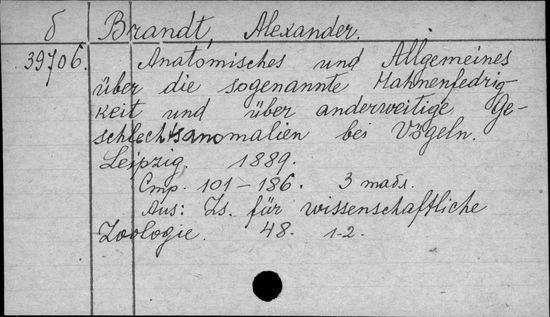 б Brandt, Alexander.
39706. Anatomisches und Allgemeines
über die sogenannte Hahnenfedrig-
keit und über anderweitige Ge-
schlechtsanomalien bei Vögeln.
Leipzig. 1889.
Стр. 101-186. 3 табл.
Aus: Zs. für wissenschaftliche
Zoologie. 48. 1-2.